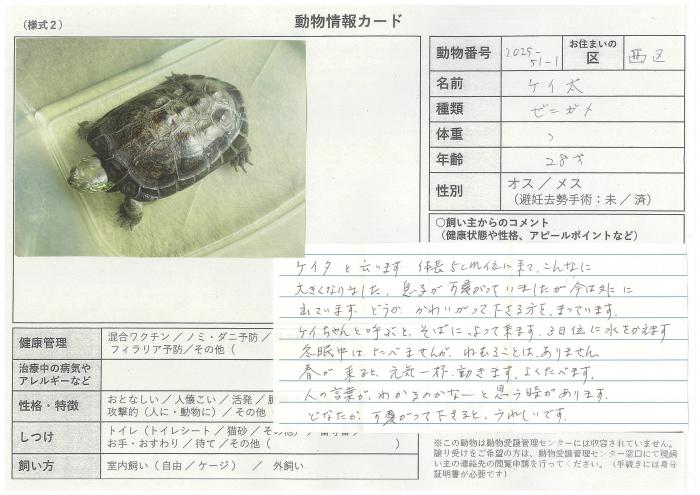 （様式２）
動物情報カード
動物番号 2025-51-1 お住まいの区 西区
名前 ケイ太
種類 ゼニガメ
体重
年齢 28才
性別 オス／メス
（避妊去勢手術：未／済）
○飼い主からのコメント
（健康状態や性格、アピールポイントなど）
ケイタと云います 体長5cm位に来て、こんなに
大きくなりました。息子が可愛がっていましたが今は外に
出ています。どうか、かわいがって下さる方を、まっています。
ケイちゃんと呼ぶと、そばによって来ます。3日位に水をかえます
冬眠中はたべませんが、ねむることは、ありません
春が来ると、元気一杯、動きます。よくたべます。
人の言葉が、わかるのかなーと思う時があります。
どなたか、可愛がって下さると、うれしいです。
健康管理 混合ワクチン／ノミ・ダニ予防／
フィラリア予防／その他（
治療中の病気や
アレルギーなど
性格・特徴 おとなしい／人懐こい／活発／
攻撃的（人に・動物に）／その他
しつけ トイレ（トイレシート／猫砂／その他）／留守番／
お手・おすわり／待て／その他（ ）
飼い方 室内飼い（自由／ケージ） ／ 外飼い
※この動物は動物愛護管理センターには収容されていません。
譲り受けをご希望の方は、動物愛護管理センター窓口にて現飼
い主の連絡先の閲覧申請を行ってください。（手続きには身分
証明書が必要です）